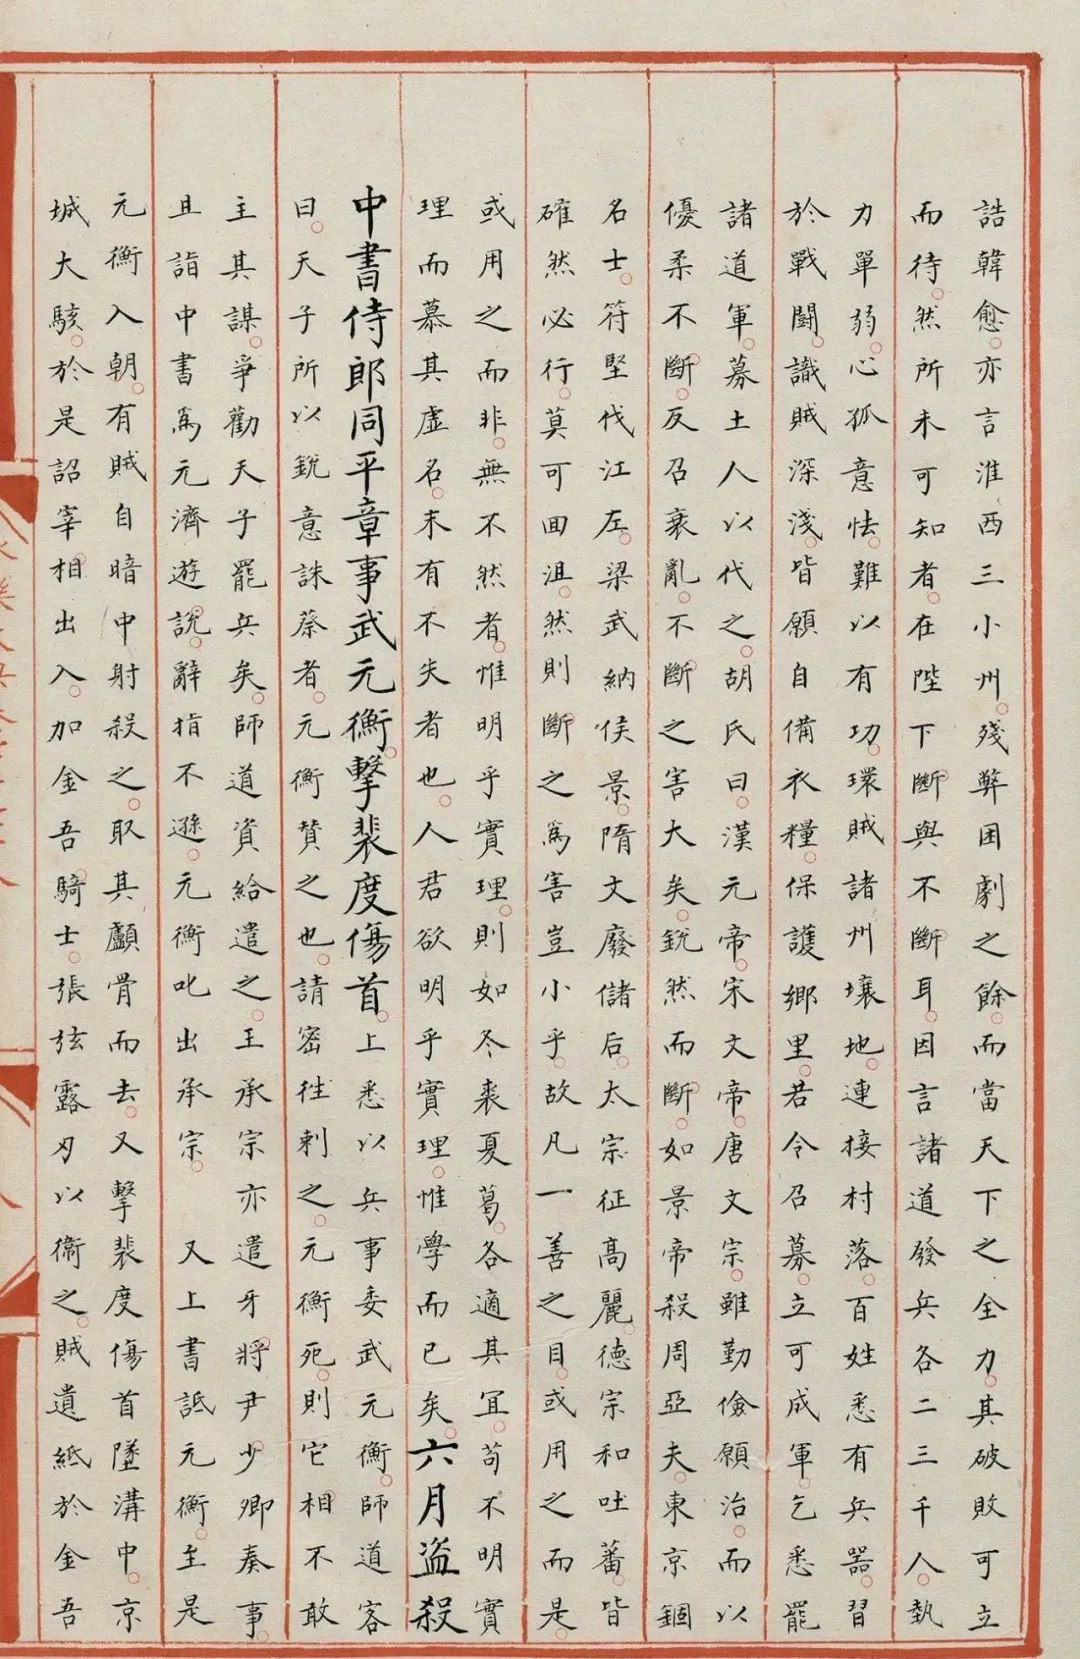 誥韓愈亦言淮西三小州殘弊困劇之餘而當天下之全力其破敗可立
而待然所未可知者在陛下斷與不斷耳因言諸道發兵各二三千人埶
力單弱心孤意怯難以有功環賊諸州壤地連接村落百姓悉有兵器習
於戰鬭識賊深淺皆願自備衣糧保護鄉里若令召募立可成軍乞悉罷
諸道軍募土人以代之胡氏曰漢元帝宋文帝唐文宗雖勤儉願治而以
優柔不斷反召衰亂不斷之害大矣銳然而斷如景帝殺周亞夫東京錮
名士符堅伐江左梁武納侯景隋文廢儲后太宗征高麗德宗和吐蕃皆
確然必行莫可回沮然則斷之為害豈小乎故凡一善之目或用之而是
或用之而非無不然者惟明乎實理則如冬裘夏葛各適其冝苟不明實
理而慕其虛名未有不失者也人君欲明乎實理惟學而已矣六月盜殺
中書侍郎同平章事武元衡擊裴度傷首上悉以兵事委武元衡師道客
曰天子所以銳意誅蔡者元衡贊之也請密往刺之元衡死則它相不敢
主其謀爭勸天子罷兵矣師道資給遣之王承宗亦遣牙將尹少卿奏事
且詣中書為元濟遊說辭指不遜元衡叱出承宗 又上書詆元衡至是
元衡入朝有賊自暗中射殺之取其顱骨而去又擊裴度傷首墜溝中京
城大駭於是詔宰相出入加金吾騎士張弦露刃以衞之賊遺紙於金吾